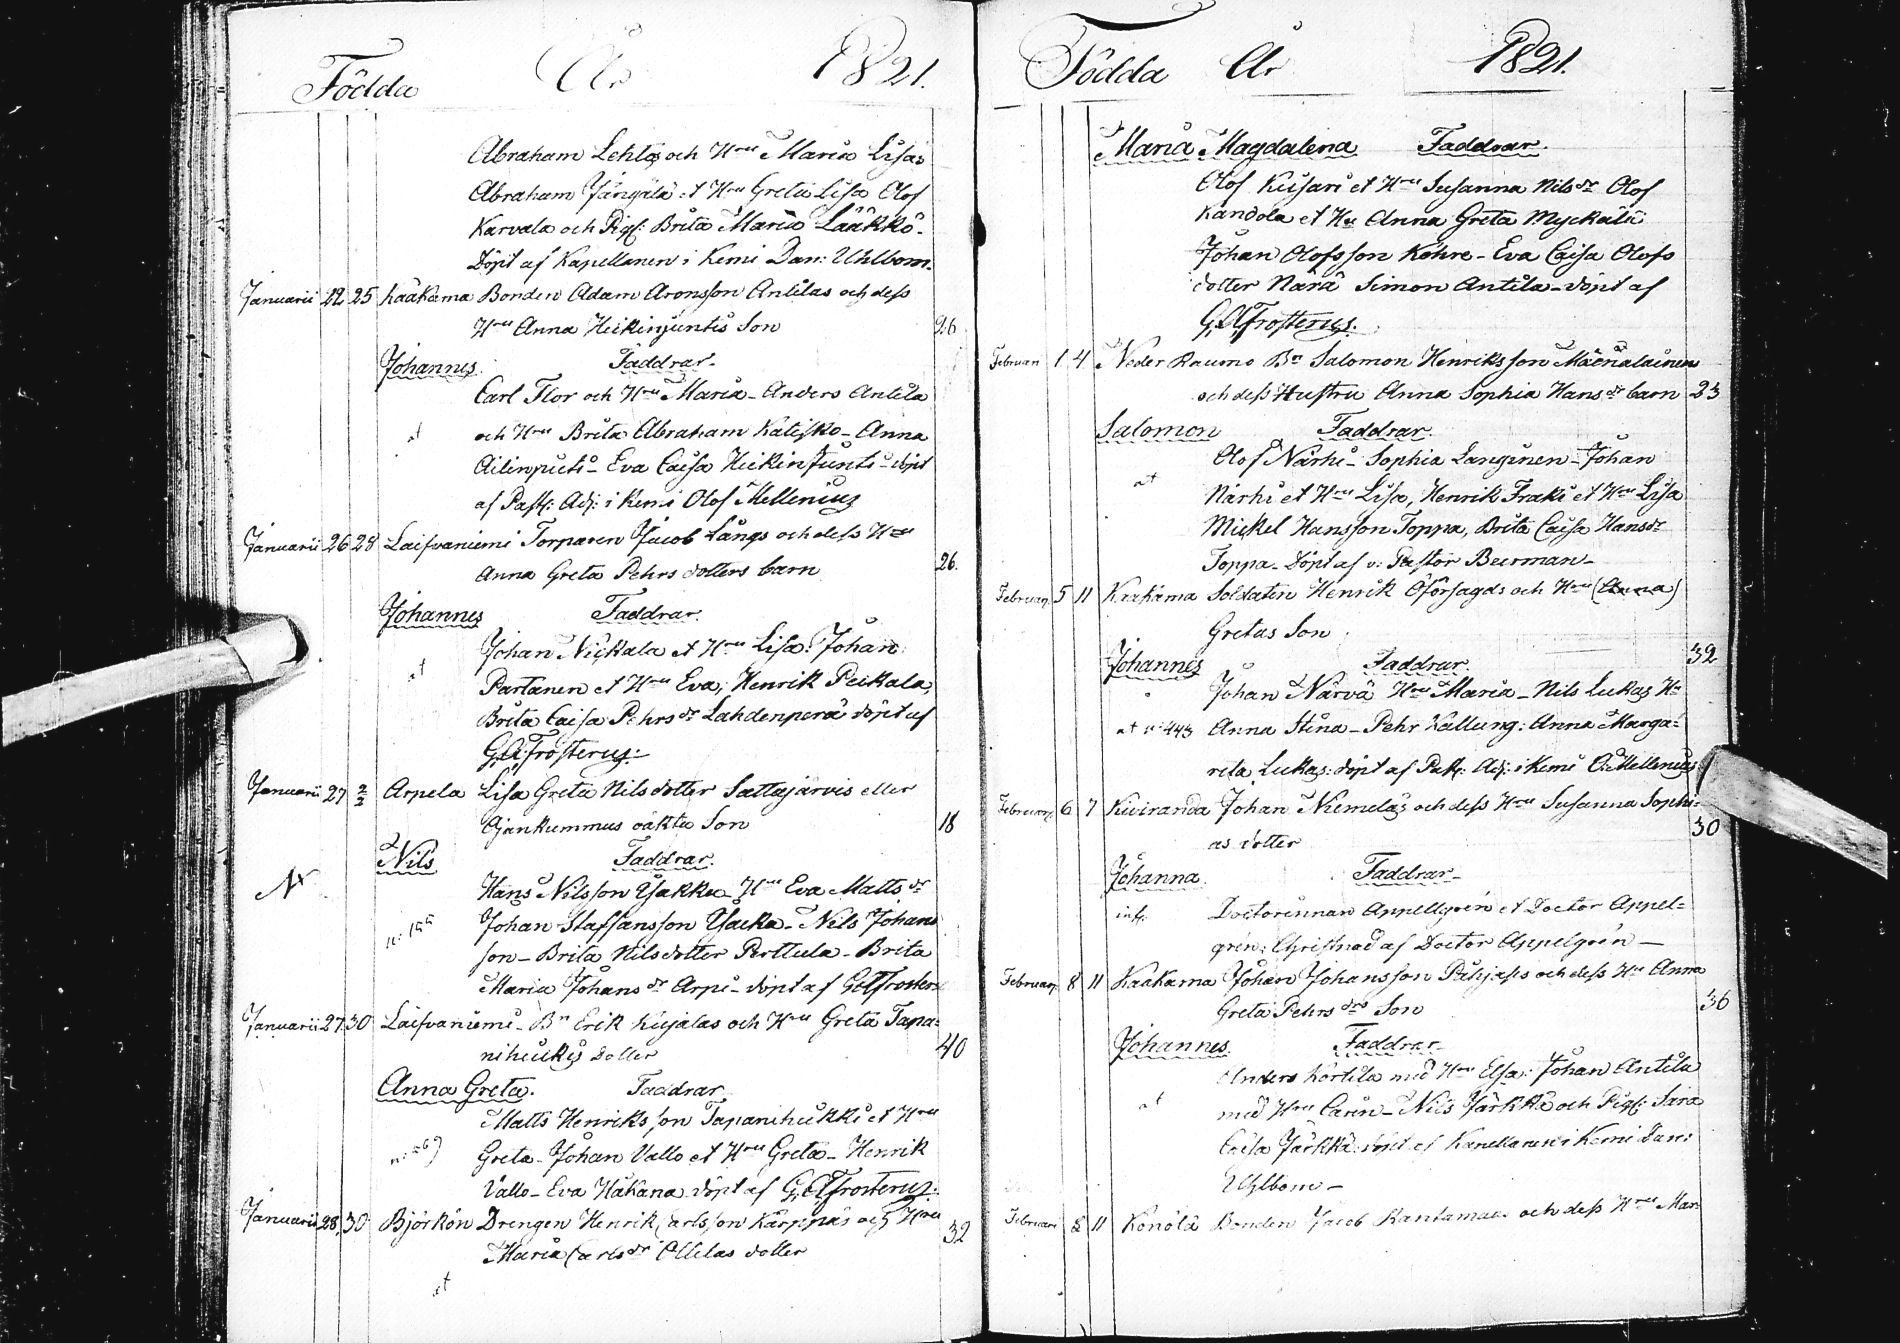 Födda År 1821.
Abraham Lehtos och Hru Maria Lisa:
Abraham Jängälä et Hru Greta Lisa Olof
Karvala och Pig: Brita Maria Lääkkö-
Döpt af Kapellanen i Kemi Dan: Uhlbom.
Januarii 22 25 Laakama Bonden Adam Aronsson Antilas och dess
Hru Anna Heikinjuntis Son 26
Johannes Faddrar.
Carl Flor och Hru Maria - Anders Antila
at och Hru Brita Abraham Katisko - Anna
Eva Caisa Heikin Junti - döpt
af Past: Adj: i Kemi Olof Mellenius
Januarii 26 28 Laifvaniemi Torparen Jacob Långs och dess Hru
Anna Greta Pehrs dotters barn 26.
Johannes Faddrar.
Johan Nickala et Hru Lisa: Johan
at Partanen et Hru Eva; Henrik Peikala,
Brita Caisa Pehrs dr Lahdenperä döpt af
G.A. Frosterus.
Januarii 27 2/2 Arpela Lisa Greta Nilsdotter Sattajärvis eller
Ojankummus oäkta Son 18
Nils Faddrar.
Hans Nilsson Yakku - Hru Eva Matts dr
Johan Staffansson Yacka - Nils Johans
son - Brita Nilsdotter Perttula - Brita
Maria Johans dr Arpi - döpt af G.A. Frosterus
Januarii 27 30 Laifvaniemi - Bn Erik Kujalas och Hru Greta Tapa=
nihukis dotter 40
Anna Greta. Faddrar
Matts Henriksson Tapanihukki et Hru
Greta - Johan Vallo et Hru Greta - Henrik
Vallo - Eva Hakana döpt af G.A. Frosterus.
Januarii 28 30 Björkön Drengen Henrik Carlsson Karppas och Hru
Maria Carls dr Ollilas dotter 32
at
Födda År 1821.
Maria Magdalena Faddrar.
Olof Kuisari et Hru Susanna Nils dr Olof
Kandola et Hu Anna Greta Myckälä
Johan Olofsson Köhre - Eva Caisa Olofs
dotter Närä Simon Antila - döpt af
G.A. Frosterus.
Februari 1 4 Neder Raumo Bn Salomon Henriksson Mäenalainen
och dess Hustru Anna Sophia Hans dr barn 23
Salomon Faddrar.
Olof Närhi - Sophia Langinen - Johan
at Närhi et Hru Lisa, Henrik Fraki et Hru Lisa
Mickel Hansson Toppa, Brita Caisa Hans dr
Toppa - Döpt af v: Pastor Beerman -
Februari 5 11 Kaakama Soldaten Henrik Oförsagds och Hru (Anna)
Gretas Son
Johannes Faddrar. 32
Johan Närvä Hru Maria - Nils Lukas Hu
at n: 443 Anna Stina - Pehr Kallung: Anna Marga=
rita Lukas: döpt af Past: Adj: i Kemi O: Mellenius
Februari 6 7 Kiviranda Johan Niemeläs och dess Hru Susanna Sophi=
as dotter 30
Johanna Faddrar -
inf: Doctorinnan Appellgrén et Doctor Appel=
grén: Christnad af Doctor Appelgrén -
Februari 8 11 Kaakama Johan Johansson Pahjass och dess Hu Anna
Greta Pehrs drs Son 36
Johannes. Faddrar -
Anders Kortila med Hru Elsa: Johan Antila
at med Hru Carin - Nils Järkkä och Pig: Sara
Caisa Järkkä döpt af Kapellanen i Kemi Dan:
Uhlbom -
Februari 8 11 Könölä Bonden Jacob Rantamaa och dess Hru Mar